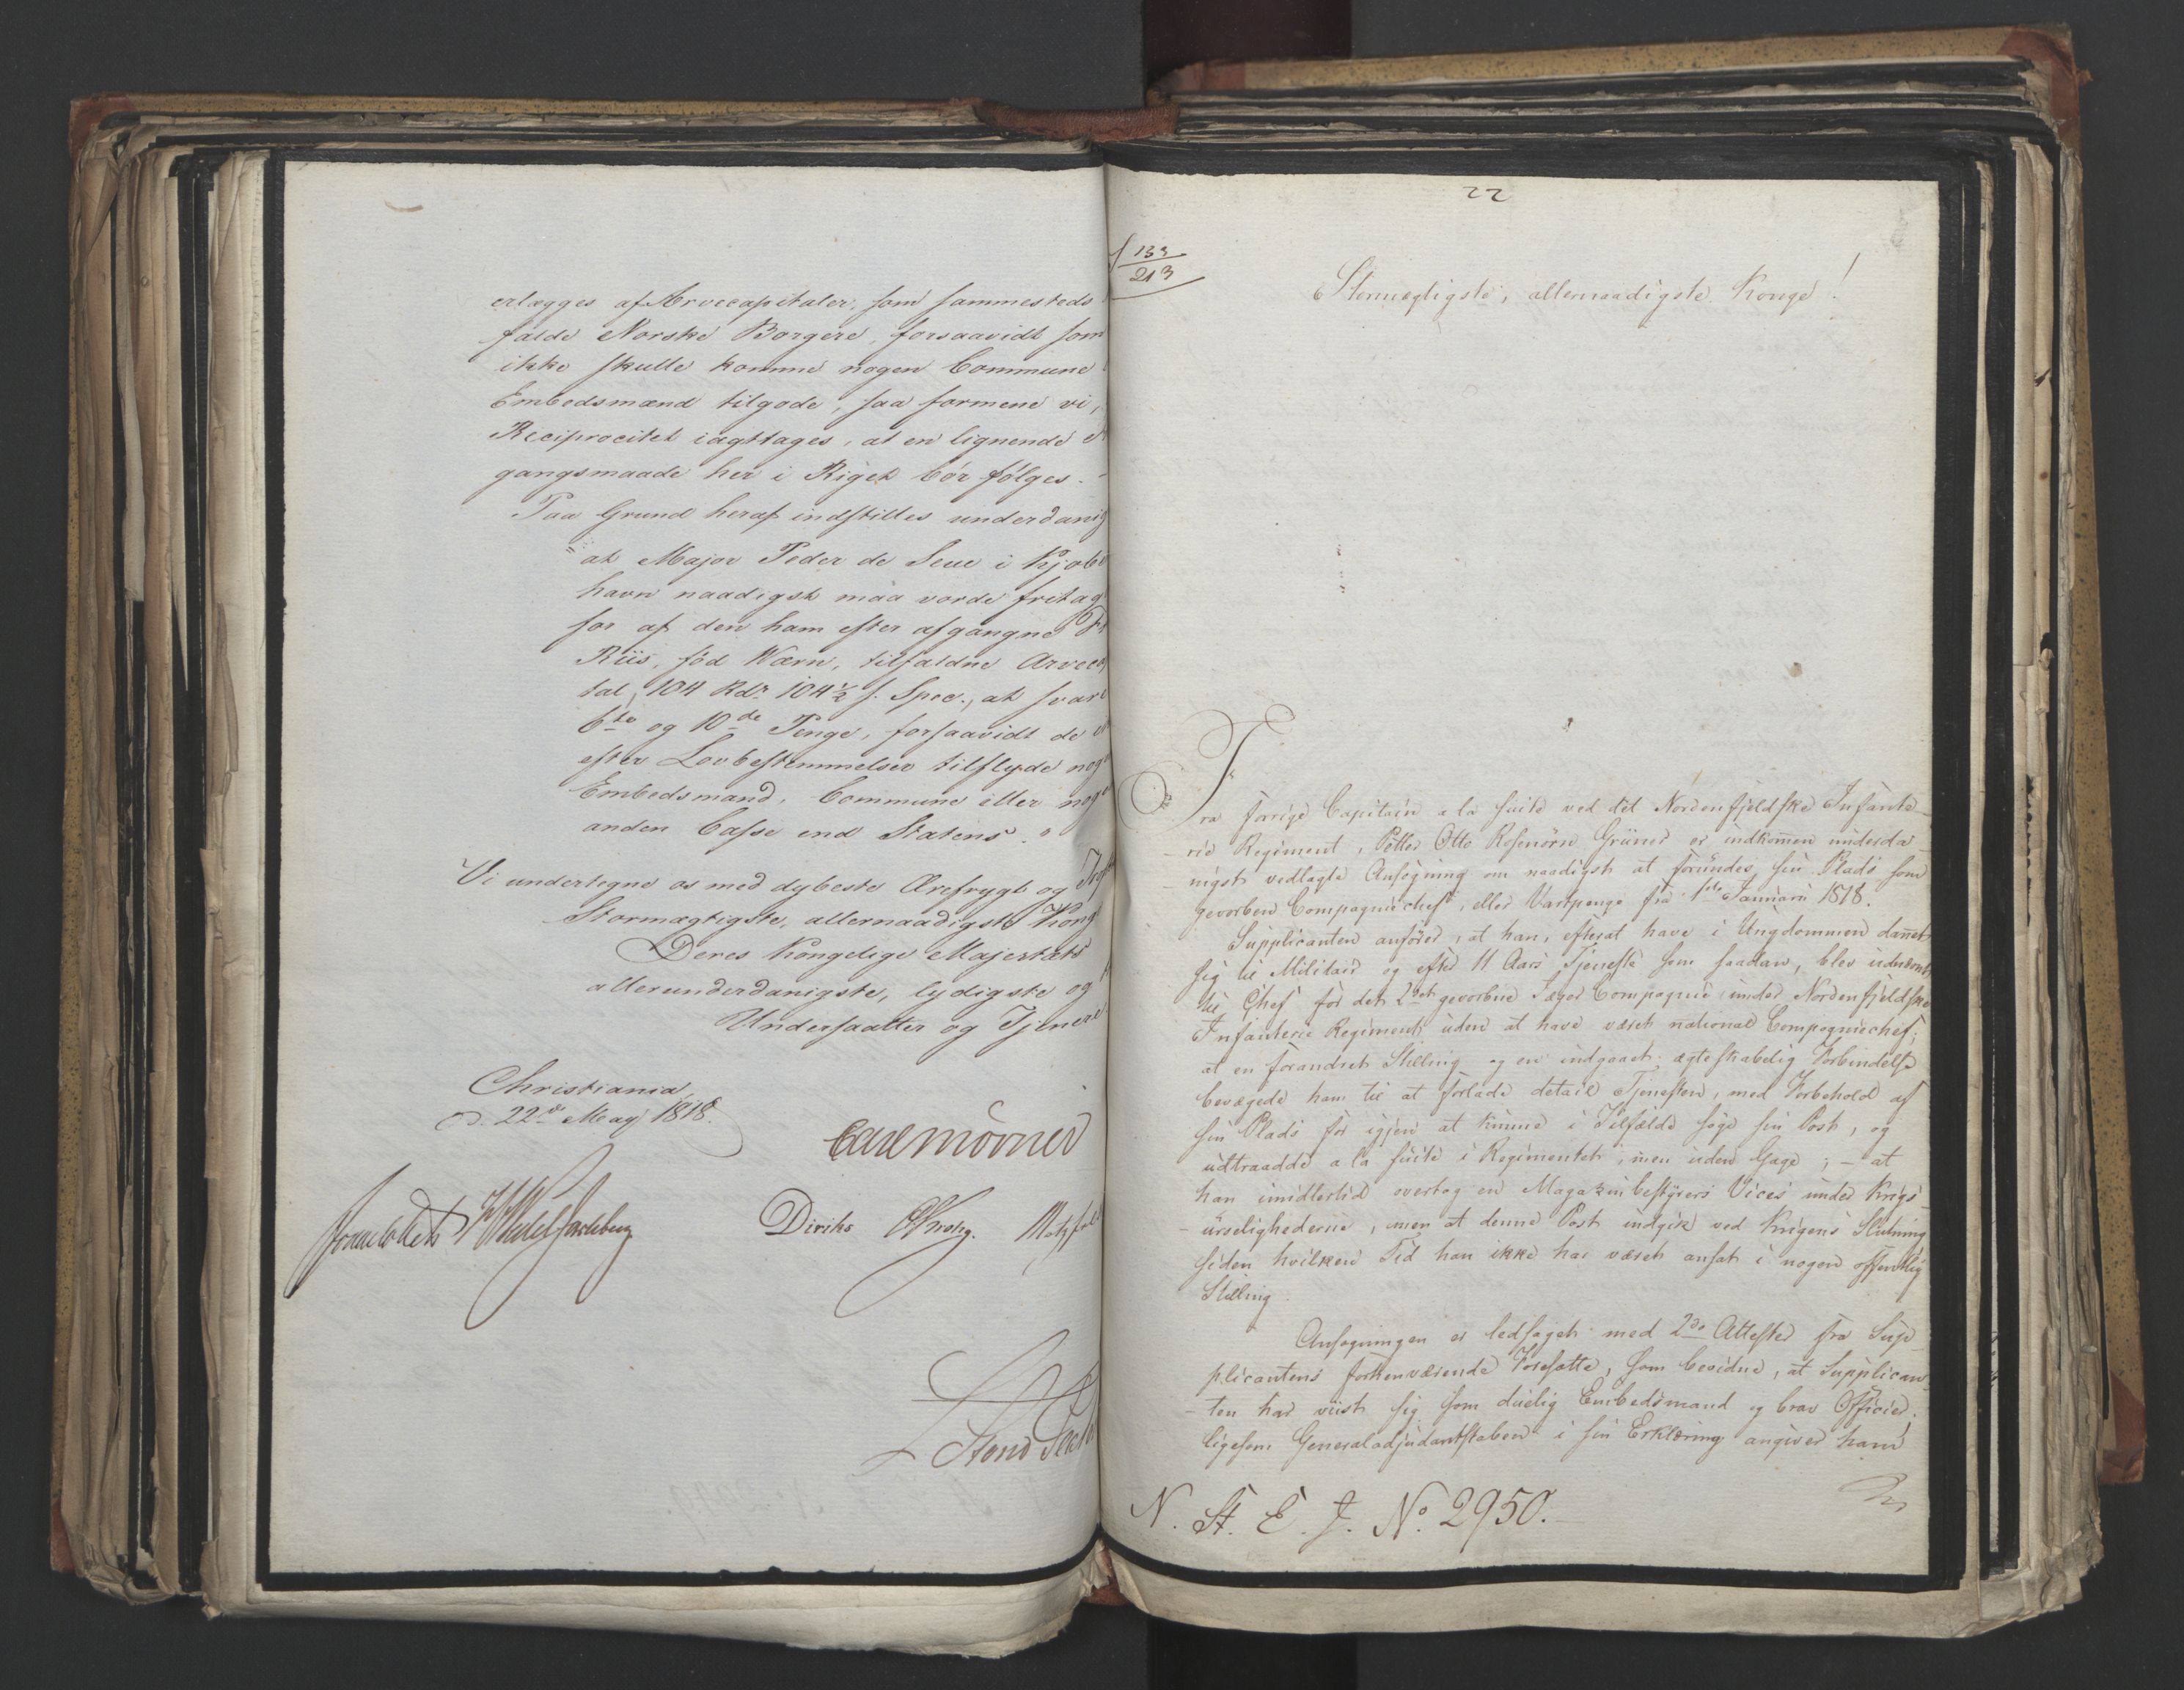 erlægges af Arvecapitaler, som sammesteds
falde Norske Borgere, forsaavidt som
ikke skulle komme nogen Commune
Embedsmænd tilgode, saa formene vi,
Reciprocitet iagttages, at en lignende
gangsmaade her i Riget bör fölges.
Paa Grund heraf indstilles underdanig
"at Major Peder de Seue i Kjøbe
havn naadigst maa vorde fritag
for af den ham efter afgangne
Riis, fød Wærn, tilfaldne Arveca
tal, 104 Rdr 104½ s. Spec., at svare
6te og 10de Penge, forsaavidt de
efter Lovbestemmelser tilflyde noge
Embedsmand, Commune eller noge
anden Casse end Statens."
Vi undertegne os med dybeste Ærefrygt og
Stormægtigste, allernaadigste Kong
Deres Kongelige Majestæts
allerunderdanigste, lydigste og
Undersaatter og Tjenere
Christiania,
d. 22de May 1818.
Carl Mörner
Sommerfeldt Wedel Jarlsberg Diriks Krohg. Motzfeldt
22
133
213
Stormægtigste, allernaadigste Konge!
Fra forrige Capitain a la suite ved det Nordenfjeldske Infante-
rie Regiment, Petter Otto Rosenörn Grüner er indkommen underda-
nigst vedlagte Ansögning om naadigst at forundes sin Plads som
gevorben Compagniechef, eller Vartpenge fra 1ste Januarii 1818.
Supplicanten anförer, at han, efterat have i Ungdommen dannet
sig til Militair og efter 11 Aars Tjeneste som saadan, blev udnævnt
til Chef for det 2det gevorbne Jæger Compagnie under Nordenfjeldske
Infanterie Regiment, uden at have været national Compagniechef;
at en forandret Stilling og en indgaaet ægteskabelig Forbindelse
bevægede ham til at forlade detail Tjenesten, med Forbehold af
sin Plads for igjen at kunne i Tilfælde söge sin Post, og
udtraadde a la suite i Regimentet, men uden Gage; – at
han imidlertid overtog en Magazinbestÿrers Vices under Krigs-
uroelighederne, men at denne Post indgik ved Krigens Slutning
siden hvilken Tid han ikke har været ansat i nogen offentlig
Stilling.
Ansøgningen er ledsaget med 2de Attester fra Sup-
plicantens forhenværende Foresatte, som bevidne, at Supplican-
ten har viist sig som duelig Embedsmand og brav Officier;
ligesom Generaladjudantstaben i sin Erklæring angiver ham
N. St. E. J. No. 2950.